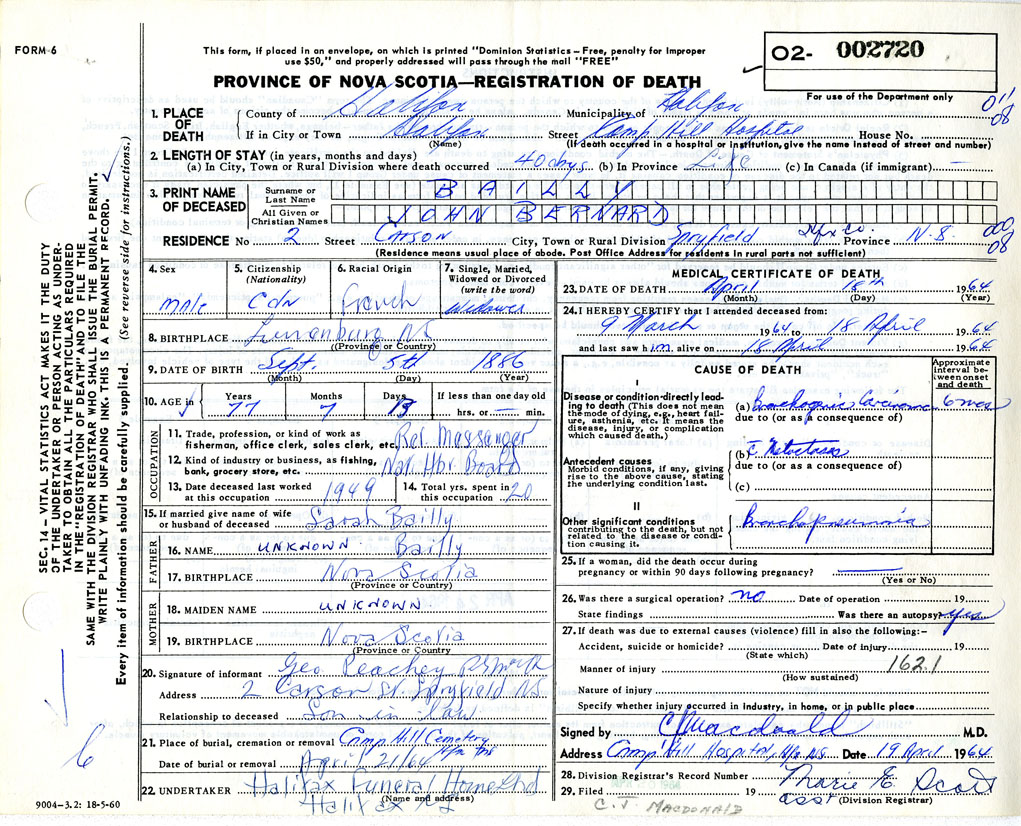 FORM-6
This form, if placed in an envelope, on which is printed "Dominion Statistics – Free, penalty for improper
use $50," and properly addressed will pass through the mail "FREE"
PROVINCE OF NOVA SCOTIA—REGISTRATION OF DEATH
O2- 002720
For use of the Department only
011
08
1. PLACE OF DEATH
County of Halifax Municipality of Halifax
If in City or Town Halifax Street Camp Hill Hospital House No.
(Name) (If death occurred in a hospital or institution, give the name instead of street and number)
2. LENGTH OF STAY (in years, months and days)
(a) In City, Town or Rural Division where death occurred 40 days (b) In Province Life (c) In Canada (if immigrant) —
3. PRINT NAME OF DECEASED
Surname or Last Name BAILLY
All Given or Christian Names JOHN BERNARD
RESIDENCE No 2 Street CARSON City, Town or Rural Division Spryfield Hfx Co. Province N.S.
08
(Residence means usual place of abode. Post Office Address for residents in rural parts not sufficient)
4. Sex male
5. Citizenship (Nationality) Cdn
6. Racial Origin French
7. Single, Married, Widowed or Divorced (write the word) Widower
8. BIRTHPLACE Lunenburg NS
(Province or Country)
9. DATE OF BIRTH Sept. 5th 1886
(Month) (Day) (Year)
10. AGE in Years 77 Months 7 Days 13 If less than one day old hrs. or — min.
OCCUPATION
11. Trade, profession, or kind of work as fisherman, office clerk, sales clerk, etc. Ret Massanger
12. Kind of industry or business, as fishing, bank, grocery store, etc. Nat. Hbr Board
13. Date deceased last worked at this occupation 1949
14. Total yrs. spent in this occupation 20
15. If married give name of wife or husband of deceased Sarah Bailly
FATHER
16. NAME UNKNOWN Bailly
17. BIRTHPLACE Nova Scotia
(Province or Country)
MOTHER
18. MAIDEN NAME UNKNOWN
19. BIRTHPLACE Nova Scotia
(Province or Country)
20. Signature of informant Geo Peachey
Address 2 Carson St. Spryfield NS
Relationship to deceased Son in law
21. Place of burial, cremation or removal Camp Hill Cemetery
Hfx NS
Date of burial or removal April 21/64
22. UNDERTAKER Halifax Funeral Home Ltd
(Name and address)
Halifax NS
MEDICAL CERTIFICATE OF DEATH
23. DATE OF DEATH April 18th 1964
(Month) (Day) (Year)
24. I HEREBY CERTIFY that I attended deceased from:
9 March 1964 to 18 April 1964
and last saw him alive on 18 April 1964
CAUSE OF DEATH
Approximate interval between onset and death
I
Disease or condition directly leading to death (This does not mean the mode of dying, e.g., heart failure, asthenia, etc. It means the disease, injury, or complication which caused death.)
(a) Bronchogenic Carcinoma 6 mos
due to (or as a consequence of)
Antecedent causes
Morbid conditions, if any, giving rise to the above cause, stating the underlying condition last.
(b) c Metastases
due to (or as a consequence of)
(c)
II
Other significant conditions contributing to the death, but not related to the disease or condition causing it.
Bronchopneumonia
25. If a woman, did the death occur during pregnancy or within 90 days following pregnancy? —
(Yes or No)
26. Was there a surgical operation? no Date of operation 19
State findings Was there an autopsy? yes
27. If death was due to external causes (violence) fill in also the following:–
Accident, suicide or homicide? Date of injury 19
(State which)
Manner of injury 162.1
(How sustained)
Nature of injury
Specify whether injury occurred in industry, in home, or in public place
Signed by CJ Macdonald M.D.
Address Camp Hill Hospital, Hfx N.S. Date 19 April 1964
28. Division Registrar's Record Number
29. Filed 19 Marie E. Scott
asst (Division Registrar)
C. J. MACDONALD
SEC. 14 – VITAL STATISTICS ACT MAKES IT THE DUTY
OF THE UNDERTAKER OR PERSON ACTING AS UNDER-
TAKER TO OBTAIN ALL THE PARTICULARS REQUIRED
IN THE "REGISTRATION OF DEATH" AND TO FILE THE
SAME WITH THE DIVISION REGISTRAR WHO SHALL ISSUE THE BURIAL PERMIT.
WRITE PLAINLY WITH UNFADING INK. THIS IS A PERMANENT RECORD.
Every item of information should be carefully supplied. (See reverse side for instructions.)
6
9004-3.2: 18-5-60